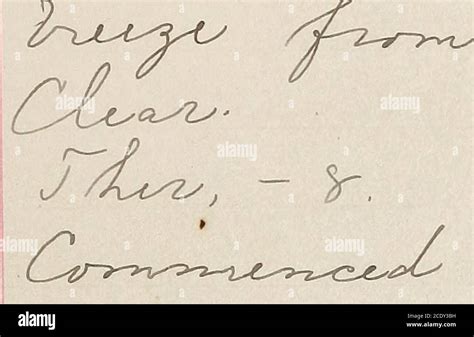 breeze from
Clear.
Ther, - 8.
Commenced
alamy
Image ID: 2CDY3BH
www.alamy.com